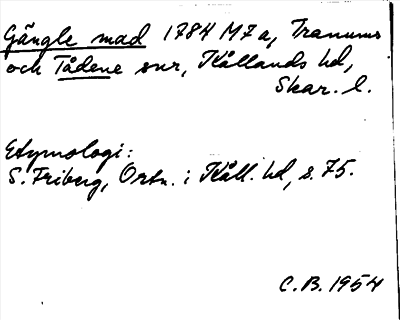 Gängle mad 1784 M7a, Tranums
och Tådene snr, Kållands hd,
Skar. l.
Etymologi:
S. Friberg, Ortn. i Kåll. hd, s. 75.
C.B. 1954